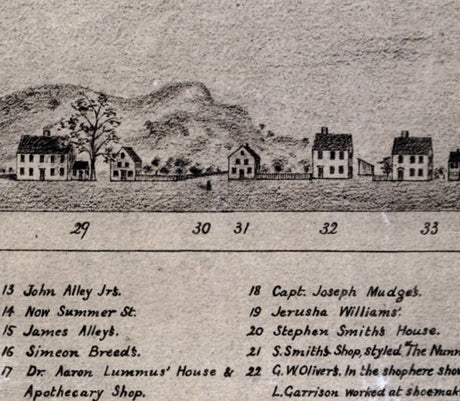 29 30 31 32 33
13 John Alley Jrs.
14 Now Summer St.
15 James Alleys.
16 Simeon Breeds.
17 Dr. Aaron Lummus' House &
Apothecary Shop.
18 Capt. Joseph Mudges.
19 Jerusha Williams'.
20 Stephen Smiths House.
21 S. Smiths Shop, styled "The Nunn
22 G.W. Olivers. In the shop here
L. Garrison worked at shoemak